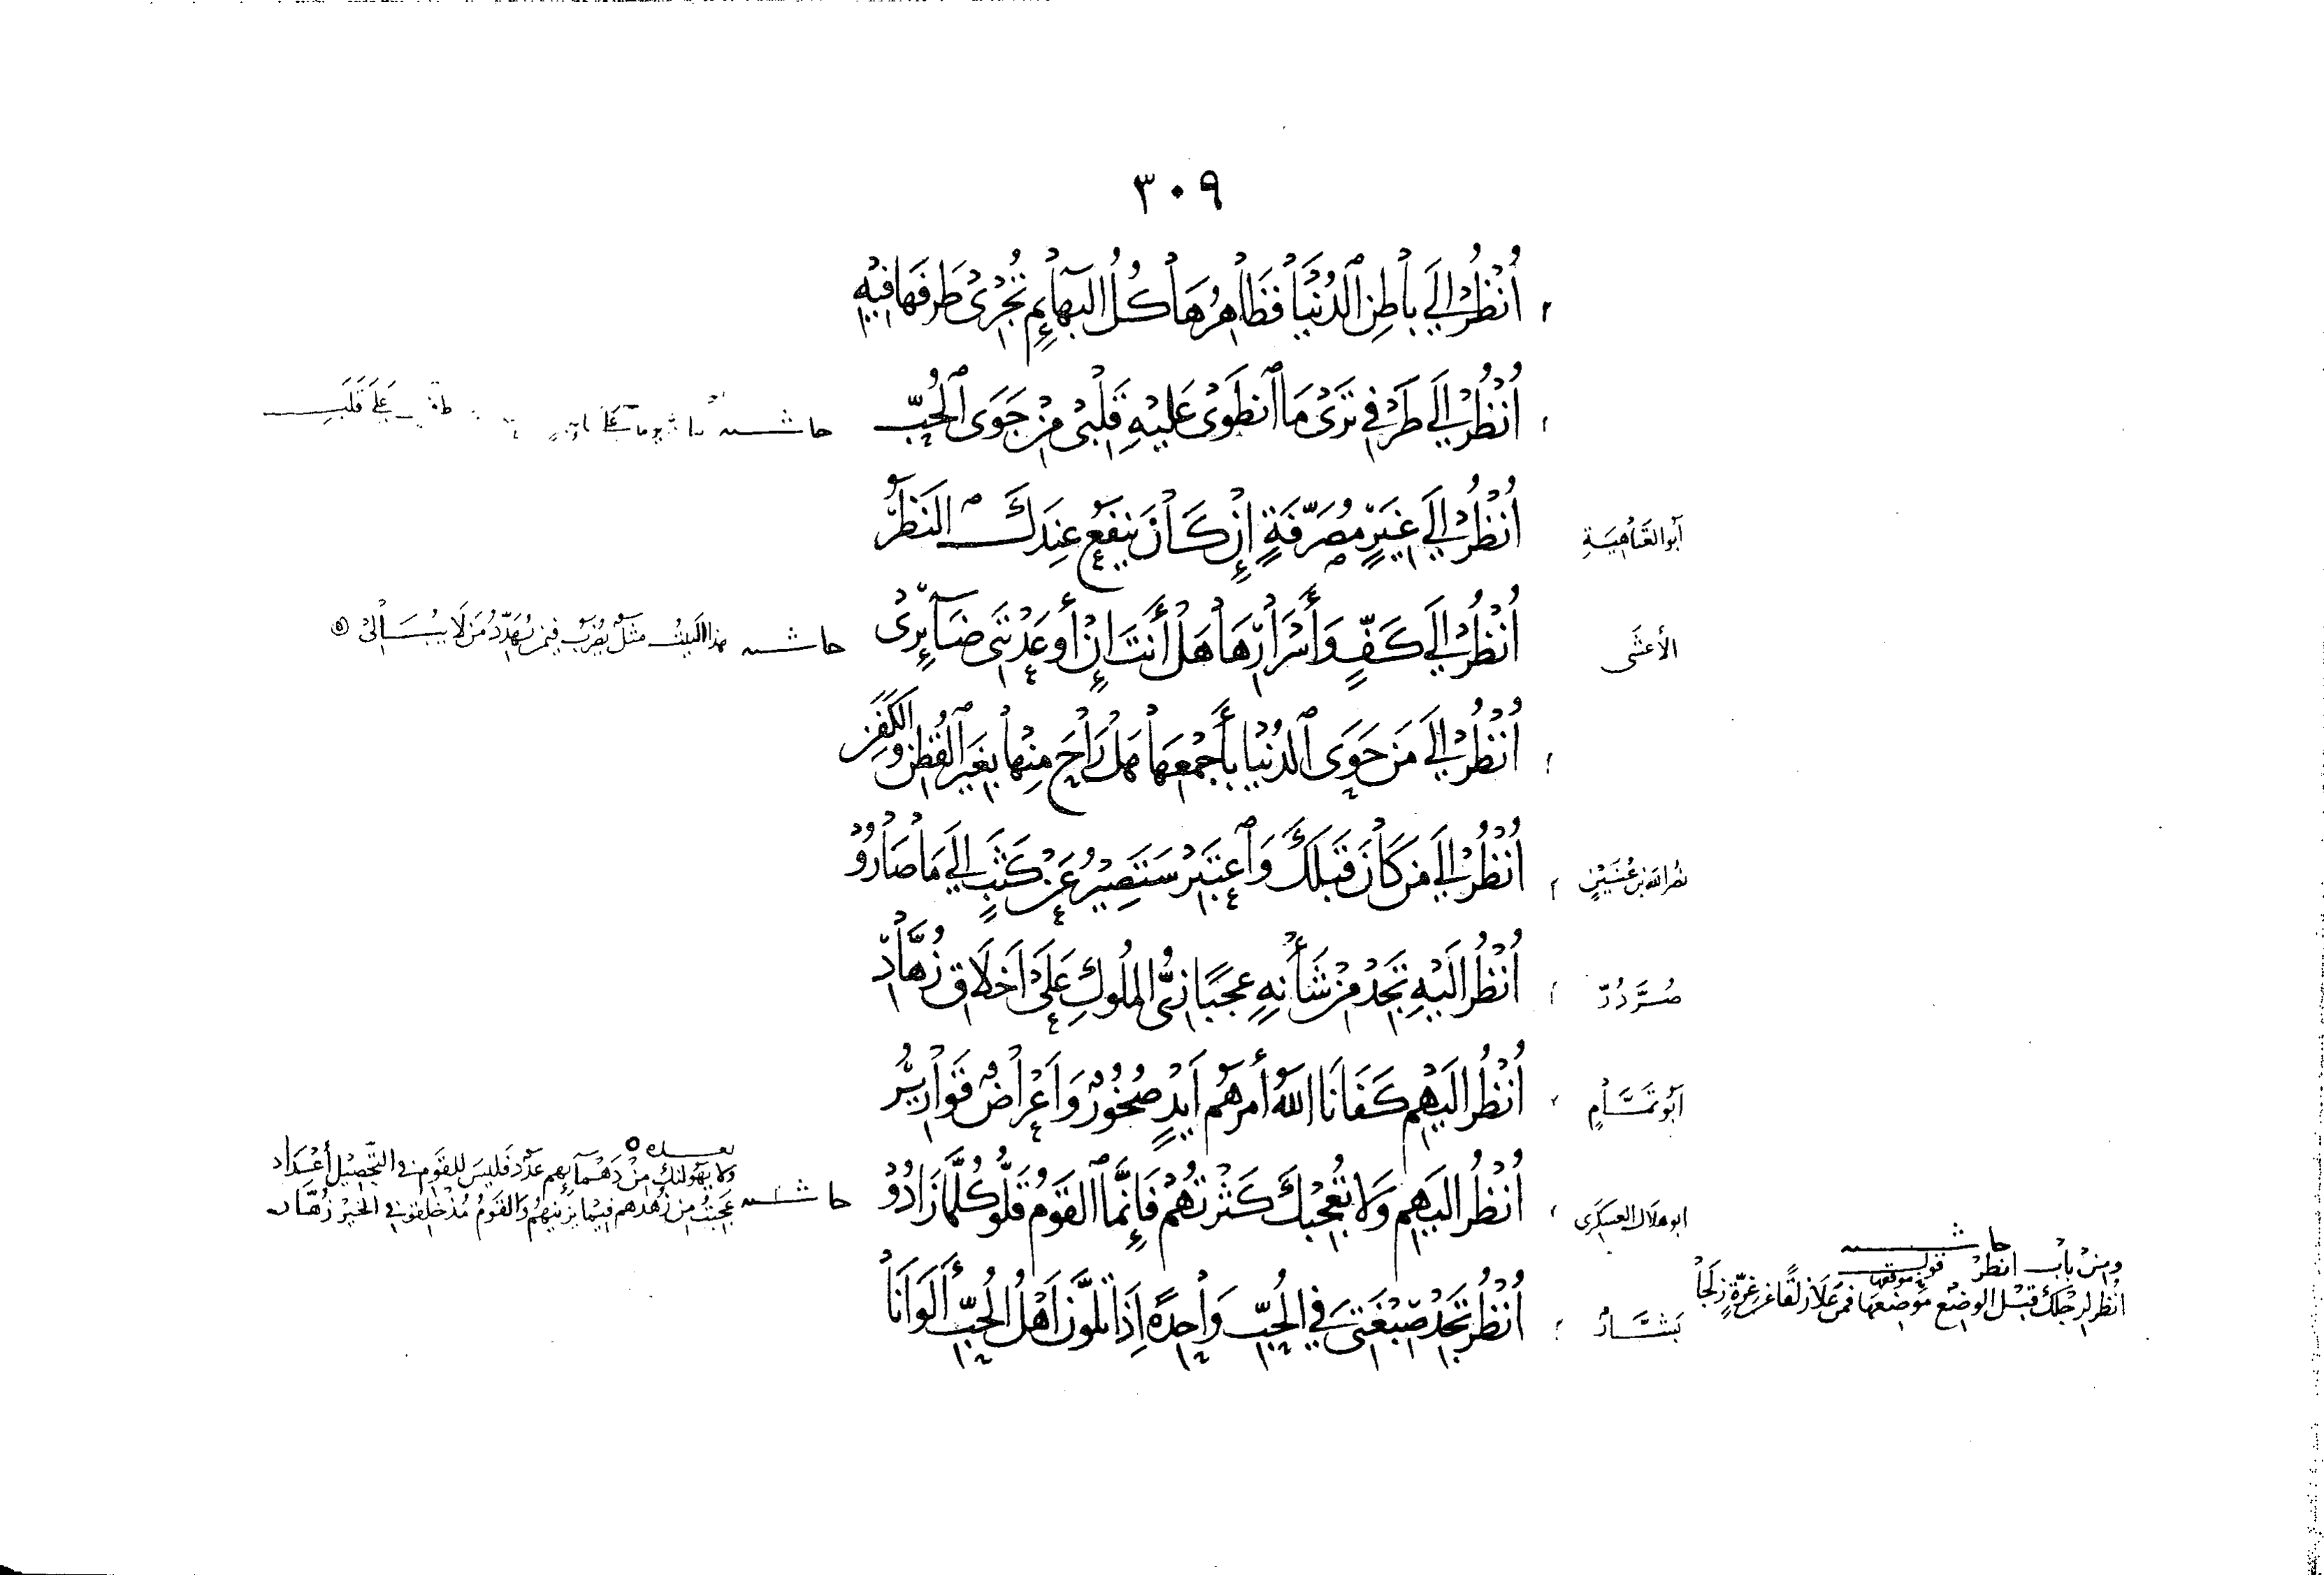 ٣٠٩
اُنْظُرْ اِلَى بَاطِنِ الدُّنْيَا فَظَاهِرُهَا كُلُّ الْبَهَائِمِ تُجْرِى طَرْفَهَا فِيْهِ
اُنْظُرْ اِلَى طَرْفِي تَرَى مَا انْطَوَى عَلَيْهِ قَلْبِى مِنْ جَوَى الْحُبِّ
حاشية
عَلَى قَلْبِ
أبو العَتَاهِيَةِ
اُنْظُرْ اِلَى غِيَرٍ مُصَرَّفَةٍ إِنْ كَانَ يَنْفَعُ عِنْدَكَ النَّظَرُ
الأعشَى
اُنْظُرْ اِلَى كَفٍّ وَأَسْرَارِهَا هَلْ أَنْتَ إِنْ أَوْعَدْتَنِى ضَائِرِى
حاشية هذا البيتُ مثلٌ يُضرَبُ فيمَن يُهَدِّدُ مَن لَا يُبَالِى
اُنْظُرْ اِلَى مَنْ حَوَى الدُّنْيَا بِأَجْمَعِهَا هَلْ رَاحَ مِنْهَا بِغَيْرِ الْقُطْنِ وَالكَفَنِ
نصر الله بن عُنَيْنٍ
اُنْظُرْ اِلَى مَنْ كَانَ قَبْلَكَ وَاعْتَبِرْ سَتَصِيْرُ عَنْ كَثَبٍ اِلَى مَا صَارُوْا
صُرَّدُرّ
اُنْظُرْ اِلَيْهِ تَجِدْ مِنْ شَأْنِهِ عَجَبًا زِىُّ الْمُلُوكِ عَلَى اَخْلَاقِ زُهَّادِ
أبو تَمَّامٍ
اُنْظُرْ اِلَيْهِمْ كَفَانَا اللهُ أَمْرَهُمُ اَيْدٍ صُخُوْرٌ وَاَعْرَاضٌ قَوَارِيْرُ
ابو هلال العسكرى
اُنْظُرْ اِلَيْهِمْ وَلَا تُعْجِبْكَ كَثْرَتُهُمْ فَإِنَّمَا الْقَوْمُ قَلُّوْ كُلَّمَا زَادُوْا
حاشية
بعده
ولا يَهُولنكَ مِنْ دَهْمَائِهِم عَدَدٌ فَلَيسَ للقَومِ فى التَّحْصِيْلِ أعْدَاد
عَجِبْتُ مِن زُهْدِهِم فِيْمَا يُزَيِّنُهُمُ وَالقَوْمُ مُذْ خُلِقُو فى الخَيْرِ زُهَّاد
بَشَّارٌ
اُنْظُرْ تَجِدْ صِبْغَتِى فِي الْحُبِّ وَاحِدَةً اِذَا تَلَوَّنَ اَهْلُ الْحُبِّ أَلْوَانَا
حاشية
ومن باب انظر قول
انظر لرجلك قبل الوضع موضعها فمن علا زلقا عن غرة زلجا